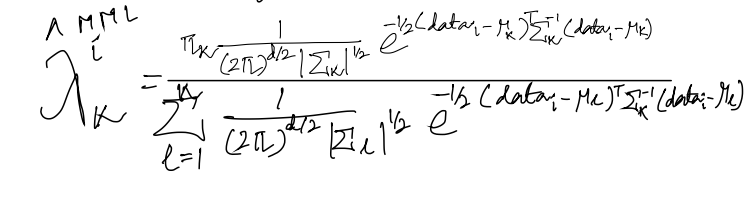 λ̂_k^{i MML} = \frac{π_k \frac{1}{(2π)^{d/2} |Σ_k|^{1/2}} e^{-1/2 (data_i - μ_k)^T Σ_k^{-1} (data_i - μ_k)}}{\sum_{l=1}^{K} \frac{1}{(2π)^{d/2} |Σ_l|^{1/2}} e^{-1/2 (data_i - μ_l)^T Σ_k^{-1} (data_i - μ_l)}}